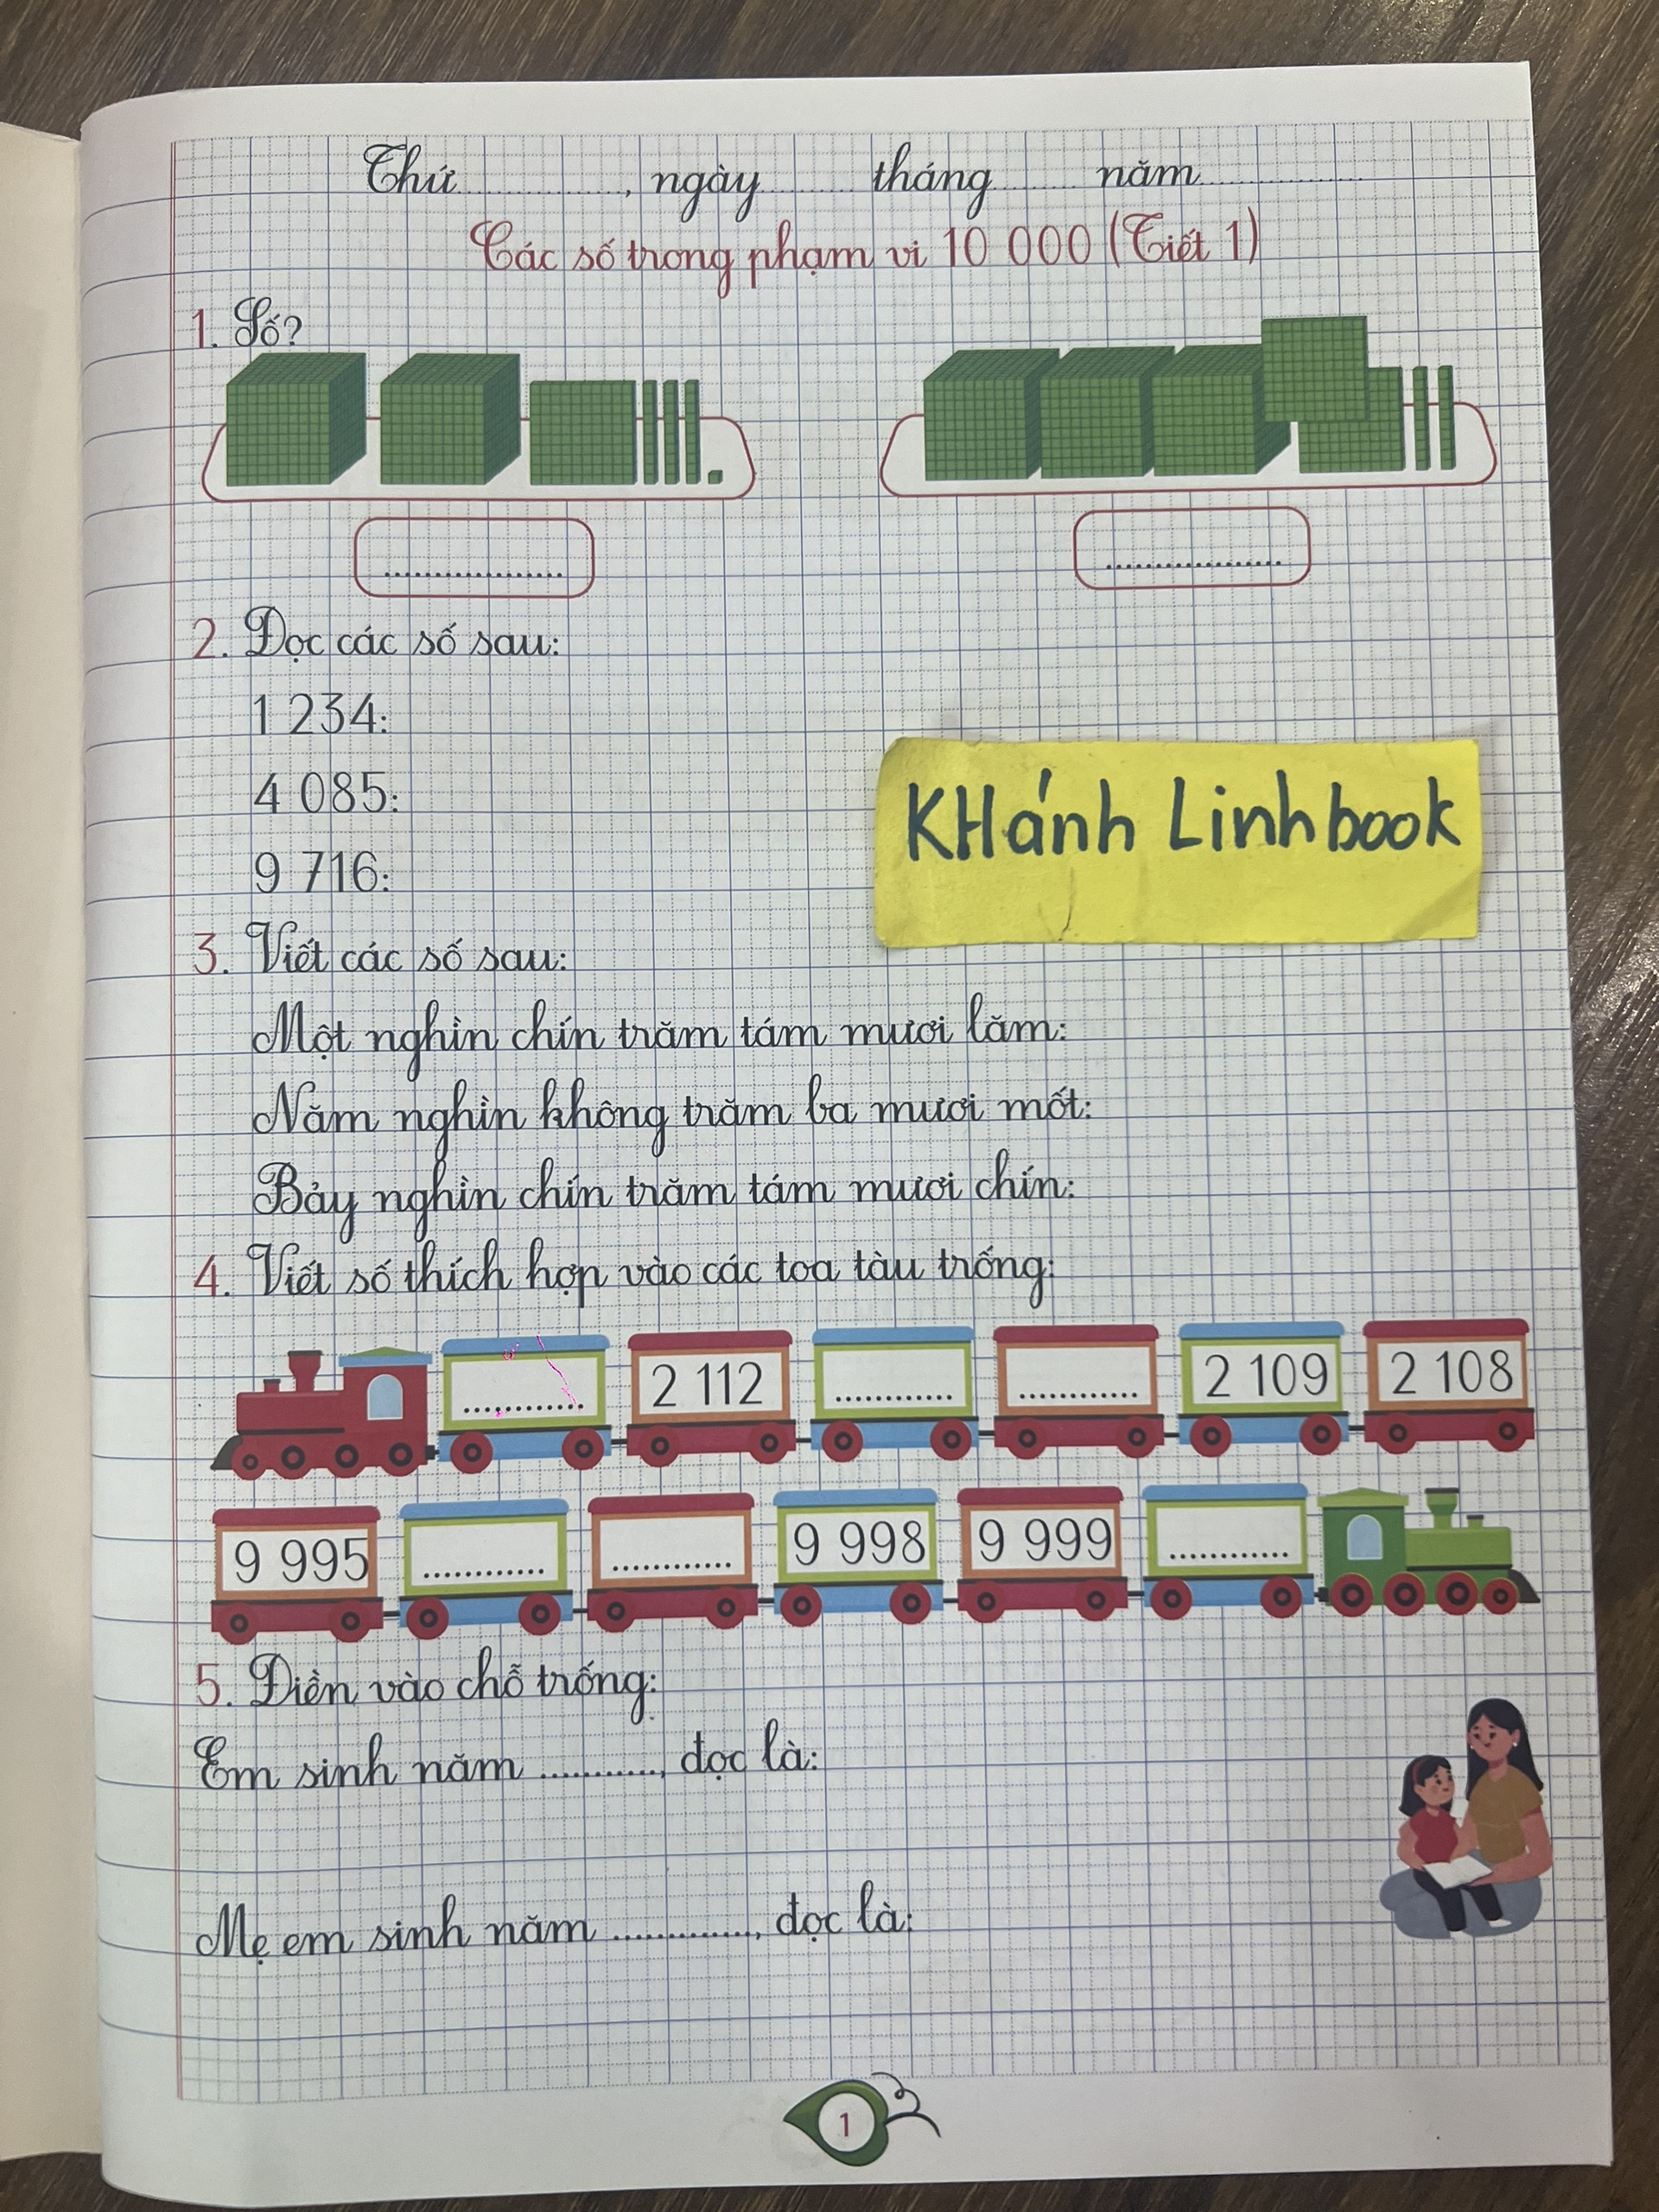 Thứ ............, ngày ...... tháng ...... năm ............
Các số trong phạm vi 10 000 (Tiết 1)
1. Số?
..................
..................
2. Đọc các số sau:
1 234:
4 085:
9 716:
KHánh Linh book
3. Viết các số sau:
Một nghìn chín trăm tám mươi lăm:
Năm nghìn không trăm ba mươi mốt:
Bảy nghìn chín trăm tám mươi chín:
4. Viết số thích hợp vào các toa tàu trống:
............ 2 112 ............ ............ 2 109 2 108
9 995 ............ ............ 9 998 9 999 ............
5. Điền vào chỗ trống:
Em sinh năm ............, đọc là:
Mẹ em sinh năm ............, đọc là:
1